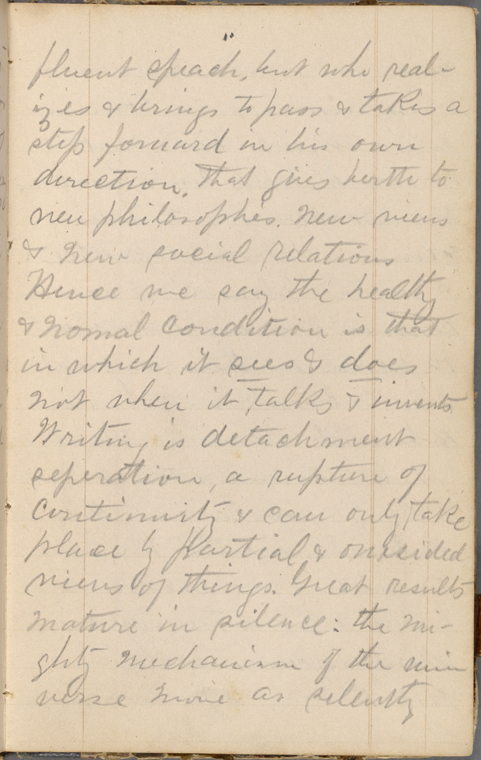 fluent speach, but who real-
izes & brings to pass & takes a
step forward in his own
direction. That gives berth to
new philosophes. New views
& new social relations
Hence we say the healthy
& nomal condition is that
in which it sees & does
not when it talks & invents
Writing is detachment
seperation, a rupture of
continuity & can only take
place by partial & onesided
views of things. Great results
mature in silence: the mi-
ghty mechanism of the uni
verse move as silently